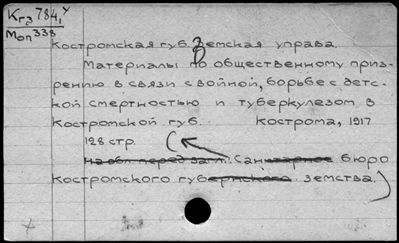 Кгэ 784,у
Моп 338
Костромская губ. Земская управа.
Материалы по общественному приз-
рению в связи с войной, борьбе с детс-
кой смертностью и туберкулезом в
Костромской губ. Кострома, 1917
128 стр.
(на обл. перед загл.: Санитарное бюро
Костромского губернского земства.)